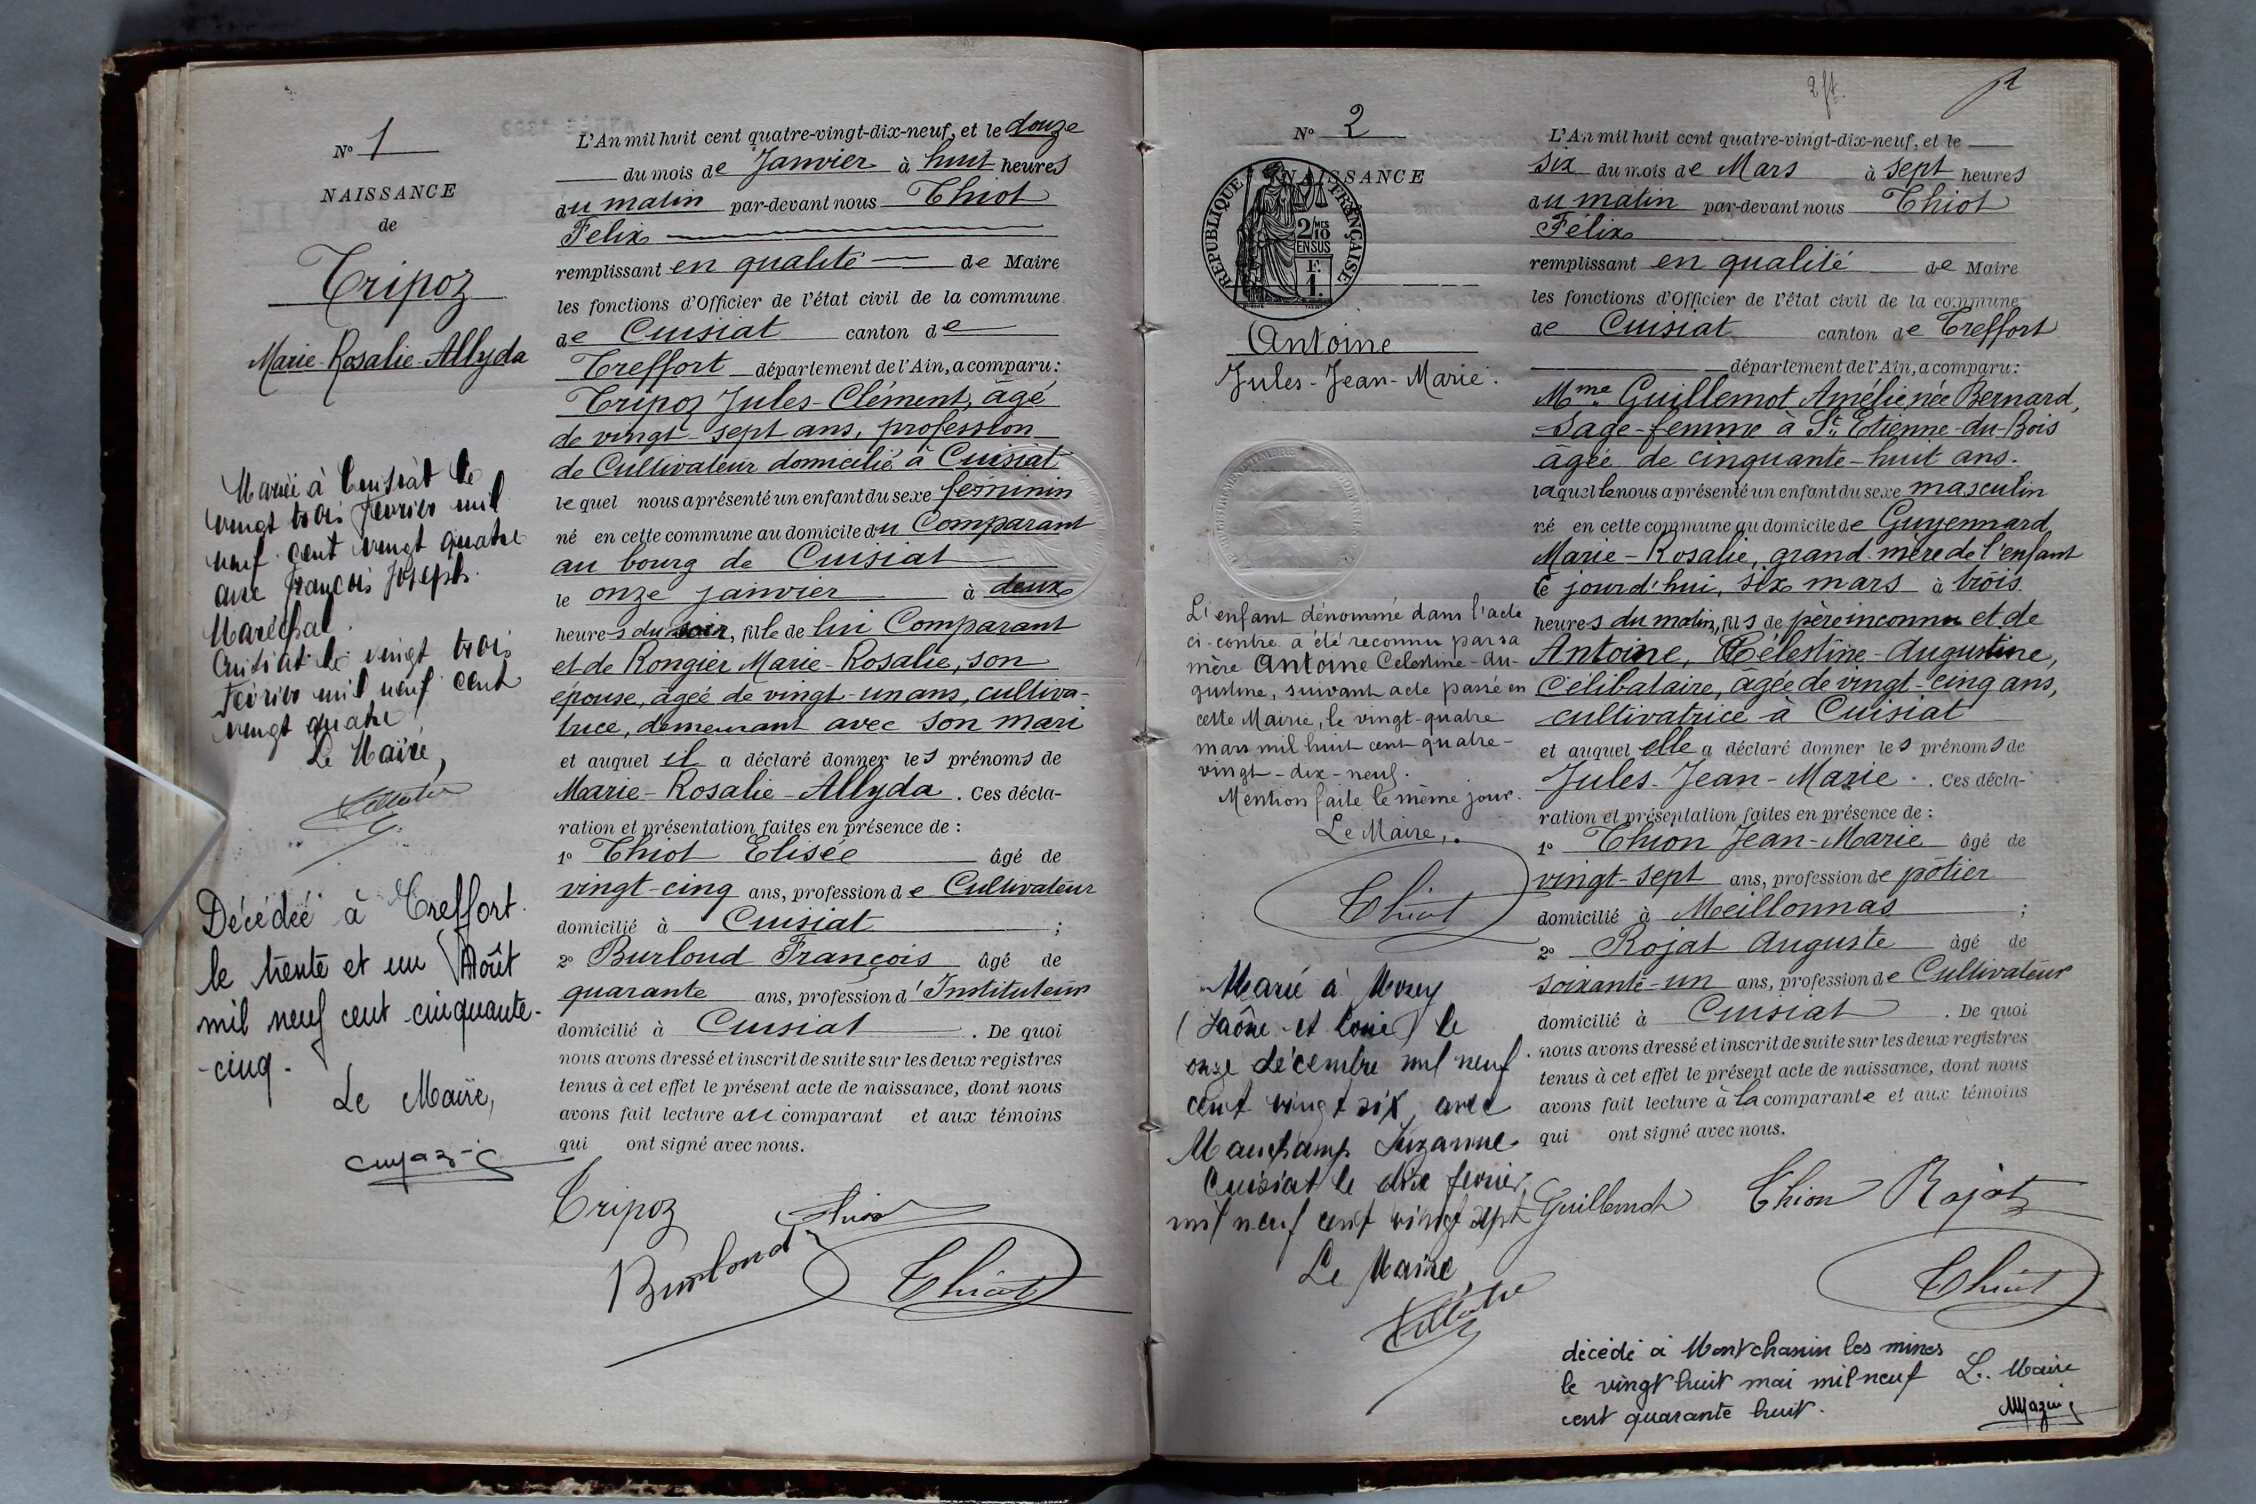 N° 1
NAISSANCE
de
Tripoz
Marie-Rosalie-Allyda
Mariée à Cuisiat le
vingt trois février mil
neuf cent vingt quatre
avec François Joseph
Maréchal.
Cuisiat le vingt trois
février mil neuf cent
vingt quatre
Le Maire,
Décédée à Treffort
le trente et un Août
mil neuf cent cinquante-
-cinq.
Le Maire,
L'An mil huit cent quatre-vingt-dix-neuf, et le douze
du mois de Janvier à huit heures
du matin par-devant nous Thiot
Félix
remplissant en qualité de Maire
les fonctions d'Officier de l'état civil de la commune
de Cuisiat canton de
Treffort département de l'Ain, a comparu:
Tripoz Jules-Clément, âgé
de vingt-sept ans, profession
de Cultivateur domicilié à Cuisiat
lequel nous a présenté un enfant du sexe féminin
né en cette commune au domicile du Comparant
au bourg de Cuisiat
le onze janvier à deux
heures du soir, fille de lui Comparant
et de Rongier Marie-Rosalie, son
épouse, âgée de vingt-un ans, cultiva-
trice, demeurant avec son mari
et auquel il a déclaré donner les prénoms de
Marie-Rosalie-Allyda. Ces décla-
ration et présentation faites en présence de :
1° Thiot Elisée âgé de
vingt-cinq ans, profession de Cultivateur
domicilié à Cuisiat ;
2° Burloud François âgé de
quarante ans, profession d'Instituteur
domicilié à Cuisiat. De quoi
nous avons dressé et inscrit de suite sur les deux registres
tenus à cet effet le présent acte de naissance, dont nous
avons fait lecture au comparant et aux témoins
qui ont signé avec nous.
Tripoz Thiot
Burloud Thiot
N° 2
NAISSANCE
RÉPUBLIQUE FRANÇAISE
2/10 MES
EN SUS
F.
1.
Antoine
Jules-Jean-Marie.
L'enfant dénommé dans l'acte
ci-contre a été reconnu par sa
mère Antoine Célestine-Au-
gustine, suivant acte passé en
cette Mairie, le vingt-quatre
mars mil huit cent quatre-
vingt-dix-neuf.
Mention faite le même jour.
Le Maire,
Thiot
Marié à
(Saône et Loire) le
onze décembre mil neuf
cent vingt six, avec
Mauchamp Suzanne
Cuisiat le dix février
mil neuf cent vingt sept
Le Maire
2 ft.
L'An mil huit cent quatre-vingt-dix-neuf, et le
six du mois de Mars à sept heures
du matin par-devant nous Thiot
Félix
remplissant en qualité de Maire
les fonctions d'Officier de l'état civil de la commune
de Cuisiat canton de Treffort
département de l'Ain, a comparu:
Mme Guillemot Amélie, née Bernard,
sage-femme à St Etienne-du-Bois
âgée de cinquante-huit ans.
laquelle nous a présenté un enfant du sexe masculin
né en cette commune au domicile de Guyennard
Marie-Rosalie, grand-mère de l'enfant
ce jourd'hui, six mars à trois
heures du matin, fils de père inconnu et de
Antoine, Célestine-Augustine,
Célibataire, âgée de vingt-cinq ans,
cultivatrice à Cuisiat
et auquel elle a déclaré donner les prénoms de
Jules-Jean-Marie. Ces décla-
ration et présentation faites en présence de :
1° Thion Jean-Marie âgé de
vingt-sept ans, profession de potier
domicilié à Meillonnas ;
2° Rojat Auguste âgé de
soixante-un ans, profession de Cultivateur
domicilié à Cuisiat. De quoi
nous avons dressé et inscrit de suite sur les deux registres
tenus à cet effet le présent acte de naissance, dont nous
avons fait lecture à la comparante et aux témoins
qui ont signé avec nous.
Guillemot Thion Rojat
Thiot
décédé à Montchanin les mines
le vingt huit mai mil neuf
cent quarante huit.
Le Maire